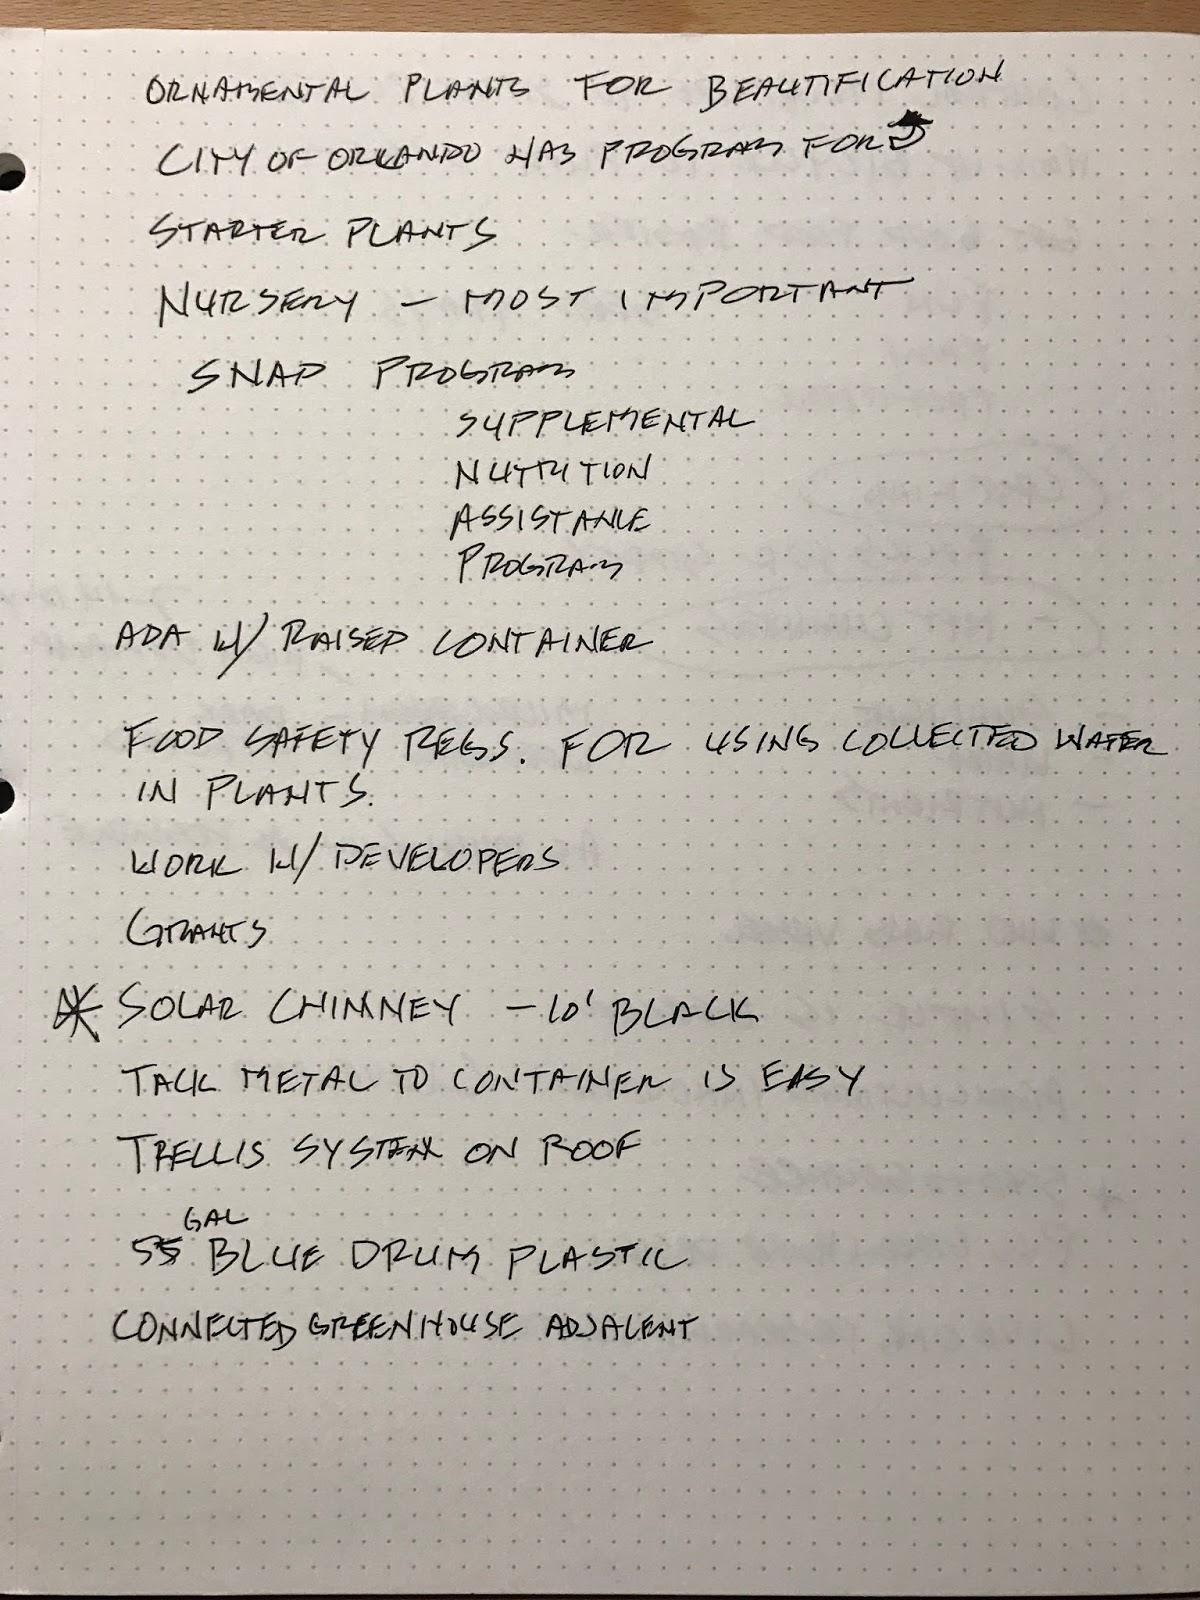 ORNAMENTAL PLANTS FOR BEAUTIFICATION
CITY OF ORLANDO HAS PROGRAM FOR
STARTER PLANTS
NURSERY – MOST IMPORTANT
SNAP PROGRAM
SUPPLEMENTAL
NUTRITION
ASSISTANCE
PROGRAM
ADA W/ RAISED CONTAINER
FOOD SAFETY REGS. FOR USING COLLECTED WATER
IN PLANTS.
WORK W/ DEVELOPERS
GRANTS
* SOLAR CHIMNEY – 10' BLACK
TACK METAL TO CONTAINER IS EASY
TRELLIS SYSTEM ON ROOF
GAL
55 BLUE DRUM PLASTIC
CONNECTED GREENHOUSE ADJACENT